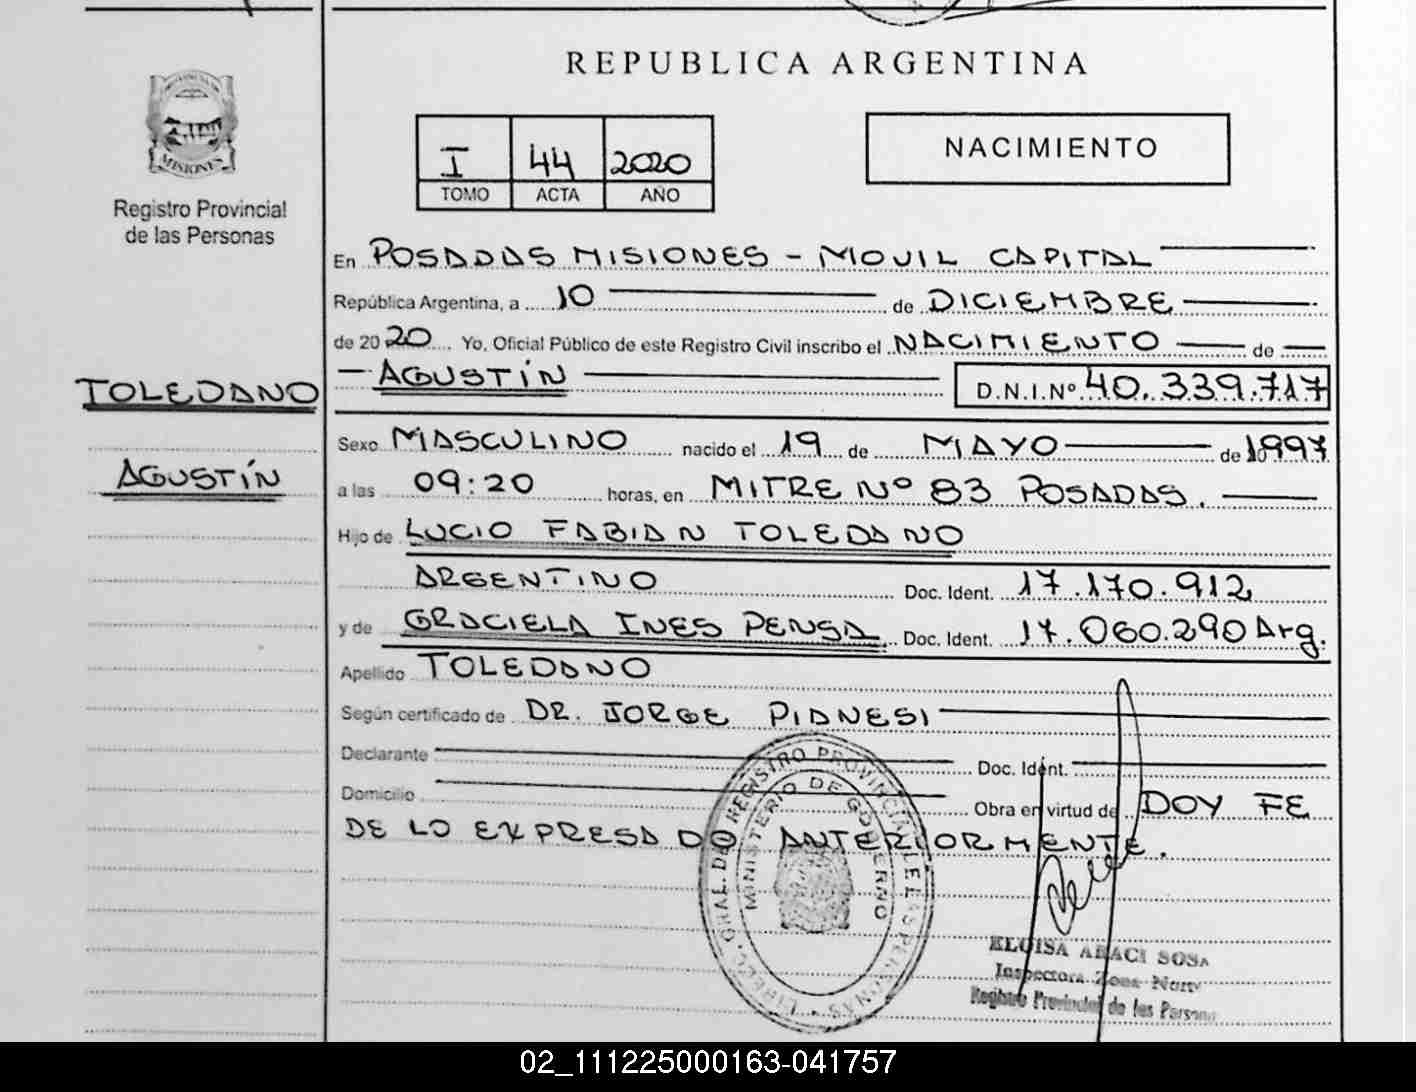 MISIONES
Registro Provincial
de las Personas
REPUBLICA ARGENTINA
I 44 2020
TOMO ACTA AÑO
NACIMIENTO
En POSADAS MISIONES - MOVIL CAPITAL
República Argentina, a 10 de DICIEMBRE
de 2020 Yo, Oficial Público de este Registro Civil inscribo el NACIMIENTO de
AGUSTÍN D.N.I.Nº 40.339.717
TOLEDANO
AGUSTÍN
Sexo MASCULINO nacido el 19 de MAYO de 1997
a las 09:20 horas, en MITRE Nº 83 POSADAS.
Hijo de LUCIO FABIAN TOLEDANO
ARGENTINO Doc. Ident. 17.170.912
y de GRACIELA INES PENSA Doc. Ident. 17.060.290 Arg.
Apellido TOLEDANO
Según certificado de DR. JORGE PIANESI
Declarante Doc. Ident.
Domicilio Obra en virtud de DOY FE
DE LO EXPRESADO ANTERIORMENTE.
DIREC. GRAL. DEL REGISTRO PROVINCIAL DE LAS PERSONAS
MINISTERIO DE GOBIERNO
ELOISA ABACI SOSA
Inspectora Zona Norte
Registro Provincial de las Personas
02_111225000163-041757